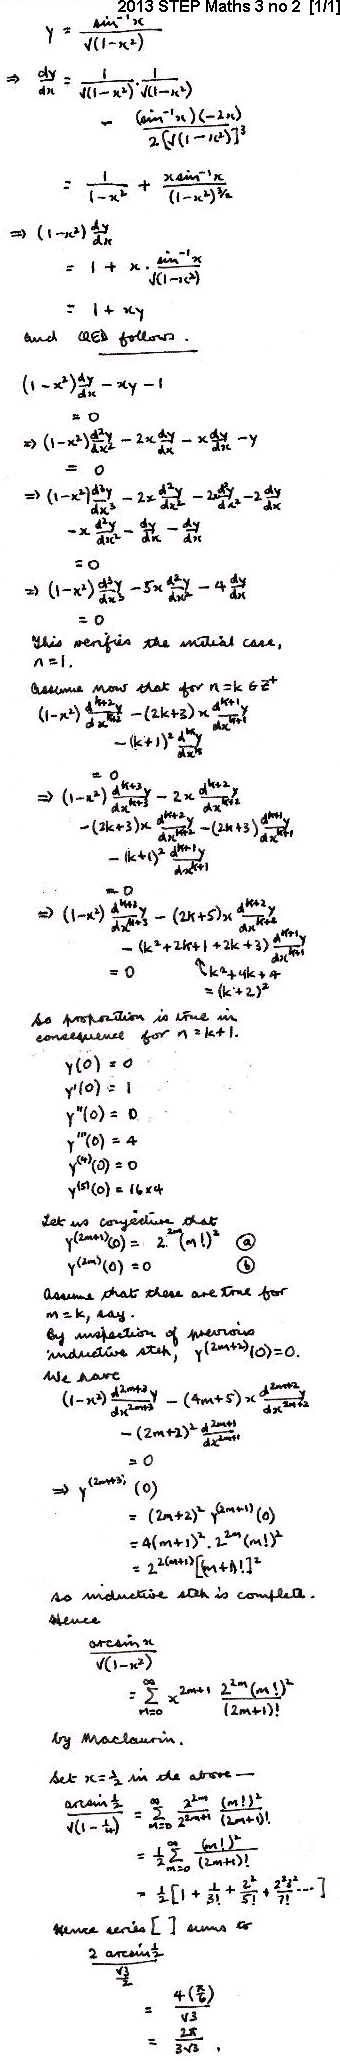 2013 STEP Maths 3 no 2 [1/1]
y = sin⁻¹x / √(1-x²)
⇒ dy/dx = 1/√(1-x²) · 1/√(1-x²)
- (sin⁻¹x)(-2x) / 2[√(1-x²)]³
= 1/(1-x²) + x sin⁻¹x/(1-x²)^(3/2)
⇒ (1-x²) dy/dx
= 1 + x · sin⁻¹x/√(1-x²)
= 1 + xy
and QED follows.
(1-x²) dy/dx - xy - 1
= 0
⇒ (1-x²) d²y/dx² - 2x dy/dx - x dy/dx - y
= 0
⇒ (1-x²) d³y/dx³ - 2x d²y/dx² - 2x d²y/dx² - 2 dy/dx
- x d²y/dx² - dy/dx - dy/dx
= 0
⇒ (1-x²) d³y/dx³ - 5x d²y/dx² - 4 dy/dx
= 0
This verifies the initial case,
n=1.
Assume now that for n=k ∈ Z⁺
(1-x²) d^(k+2)y/dx^(k+2) - (2k+3)x d^(k+1)y/dx^(k+1)
- (k+1)² d^k y/dx^k
= 0
⇒ (1-x²) d^(k+3)y/dx^(k+3) - 2x d^(k+2)y/dx^(k+2)
- (2k+3)x d^(k+2)y/dx^(k+2) - (2k+3) d^(k+1)y/dx^(k+1)
- (k+1)² d^(k+1)y/dx^(k+1)
= 0
⇒ (1-x²) d^(k+3)y/dx^(k+3) - (2k+5)x d^(k+2)y/dx^(k+2)
- (k²+2k+1+2k+3) d^(k+1)y/dx^(k+1)
= 0 k²+4k+4
= (k+2)²
So proposition is true in
consequence for n=k+1.
y(0) = 0
y'(0) = 1
y''(0) = 0
y'''(0) = 4
y⁽⁴⁾(0) = 0
y⁽⁵⁾(0) = 16×4
Let us conjecture that
y^(2m+1)(0) = 2^(2m) (m!)² ⓐ
y^(2m)(0) = 0 ⓑ
Assume that these are true for
m=k, say.
By inspection of previous
inductive step, y^(2m+2)(0)=0.
We have
(1-x²) d^(2m+3)y/dx^(2m+3) - (4m+5)x d^(2m+2)y/dx^(2m+2)
- (2m+2)² d^(2m+1)/dx^(2m+1)
= 0
⇒ y^(2m+3)(0)
= (2m+2)² y^(2m+1)(0)
= 4(m+1)² . 2^(2m) (m!)²
= 2^(2(m+1)) [(m+1)!]²
So inductive step is complete.
Hence
arcsin x / √(1-x²)
= ∑_(m=0)^∞ x^(2m+1) 2^(2m)(m!)²/(2m+1)!
by Maclaurin.
Set x=½ in the above —
arcsin ½ / √(1-¼) = ∑_(m=0)^∞ 2^(2m)/2^(2m+1) (m!)²/(2m+1)!
= ½ ∑_(m=0)^∞ (m!)²/(2m+1)!
= ½ [1 + 1/3! + 2²/5! + 2²3²/7! ····]
Hence series [ ] sums to
2 arcsin ½ / (√3/2)
= 4(π/6)/√3
= 2π/3√3 .